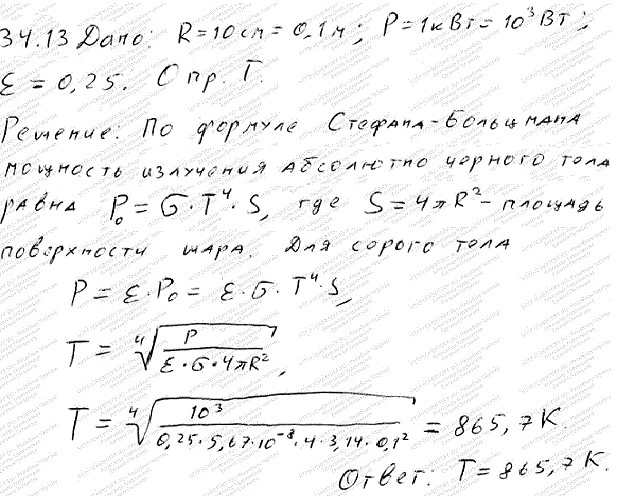 34.13 Дано: R = 10 см = 0,1 м; P = 1 кВт = 10³ Вт;
ε = 0,25. Опр. T.
Решение: По формуле Стефана-Больцмана
мощность излучения абсолютно черного тела
равна P₀ = σ·T⁴·S, где S = 4πR² - площадь
поверхности шара. Для серого тела
P = ε·P₀ = ε·σ·T⁴·S,
T = ⁴√(P / (ε·σ·4πR²)),
T = ⁴√(10³ / (0,25·5,67·10⁻⁸·4·3,14·0,1²)) = 865,7 К.
Ответ: T = 865,7 К.